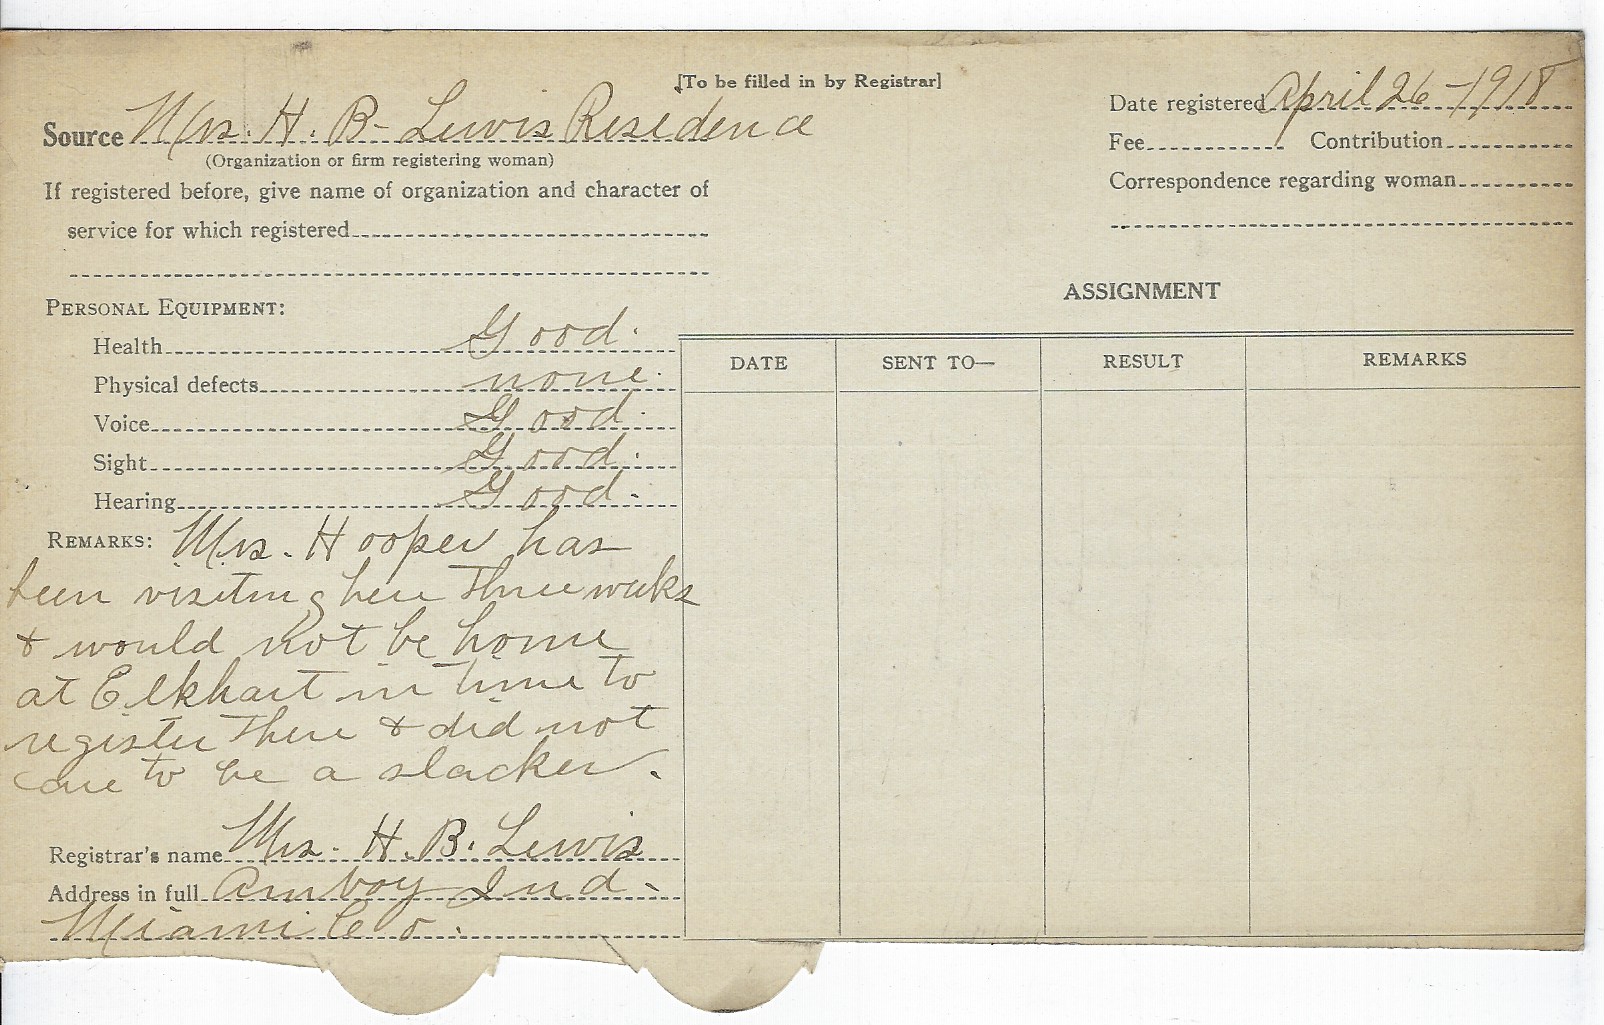 [To be filled in by Registrar]
Source Mrs. H. B. Lewis Residence
(Organization or firm registering woman)
If registered before, give name of organization and character of
service for which registered
Date registered April 26 - 1918
Fee Contribution
Correspondence regarding woman
PERSONAL EQUIPMENT:
Health Good.
Physical defects none.
Voice Good.
Sight Good.
Hearing Good.
REMARKS: Mrs. Hooper has
been visiting here three weeks
& would not be home
at Elkhart in time to
register there & did not
care to be a slacker.
Registrar's name Mrs. H. B. Lewis
Address in full Amboy Ind.
Miami Co.
ASSIGNMENT
DATE SENT TO— RESULT REMARKS